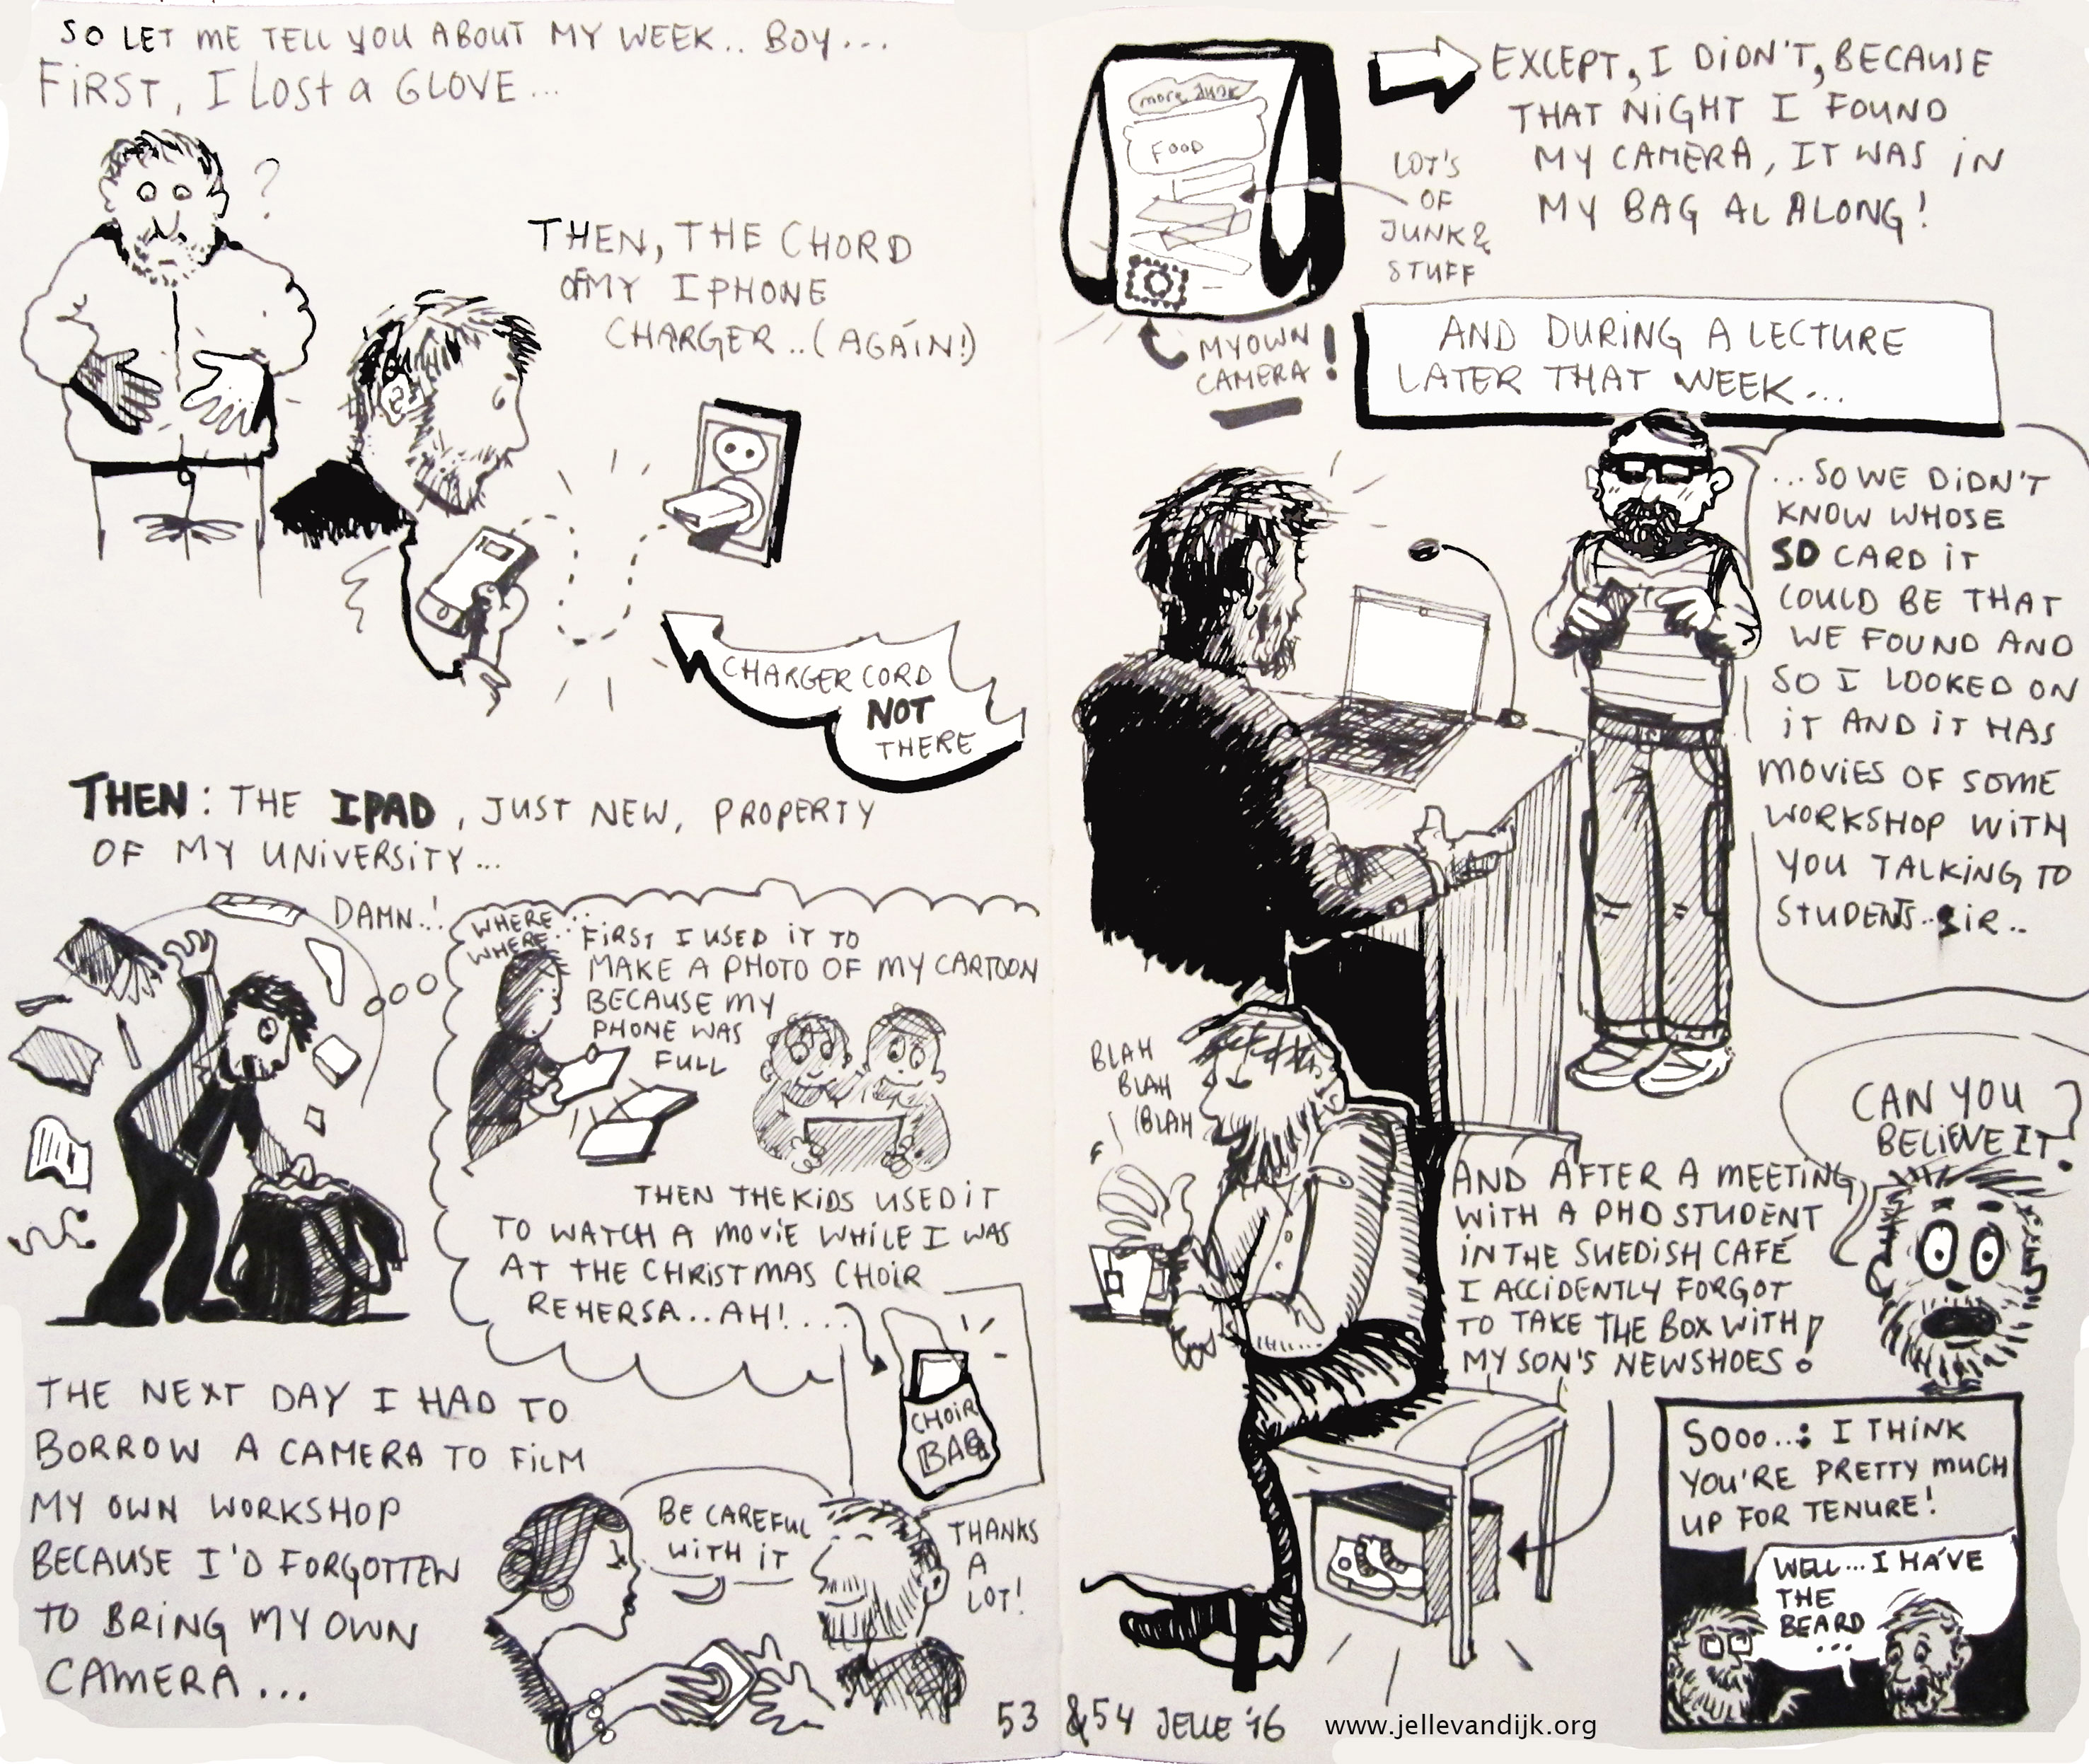 SO LET ME TELL YOU ABOUT MY WEEK.. BOY...
FIRST, I LOST A GLOVE...
?
THEN, THE CHORD
OF MY IPHONE
CHARGER..(AGAIN!)
CHARGER CORD
NOT
THERE
THEN: THE IPAD, JUST NEW, PROPERTY
OF MY UNIVERSITY...
DAMN..!
WHERE...
WHERE...
FIRST I USED IT TO
MAKE A PHOTO OF MY CARTOON
BECAUSE MY
PHONE WAS
FULL
THEN THE KIDS USED IT
TO WATCH A MOVIE WHILE I WAS
AT THE CHRISTMAS CHOIR
REHERSA...AH!....
CHOIR
BAG
THE NEXT DAY I HAD TO
BORROW A CAMERA TO FILM
MY OWN WORKSHOP
BECAUSE I'D FORGOTTEN
TO BRING MY OWN
CAMERA...
BE CAREFUL
WITH IT
THANKS
A
LOT!
more Junk
FOOD
LOT'S
OF
JUNK &
STUFF
MY OWN
CAMERA!
EXCEPT, I DIDN'T, BECAUSE
THAT NIGHT I FOUND
MY CAMERA, IT WAS IN
MY BAG AL ALONG!
AND DURING A LECTURE
LATER THAT WEEK...
...SO WE DIDN'T
KNOW WHOSE
SD CARD IT
COULD BE THAT
WE FOUND AND
SO I LOOKED ON
IT AND IT HAS
MOVIES OF SOME
WORKSHOP WITH
YOU TALKING TO
STUDENTS..SIR..
BLAH
BLAH
BLAH
AND AFTER A MEETING
WITH A PHD STUDENT
IN THE SWEDISH CAFÉ
I ACCIDENTLY FORGOT
TO TAKE THE BOX WITH
MY SON'S NEW SHOES!
CAN YOU
BELIEVE IT?
SOOO..: I THINK
YOU'RE PRETTY MUCH
UP FOR TENURE!
WELL...I HAVE
THE
BEARD
...
53 & 54 JELLE '16
www.jellevandijk.org